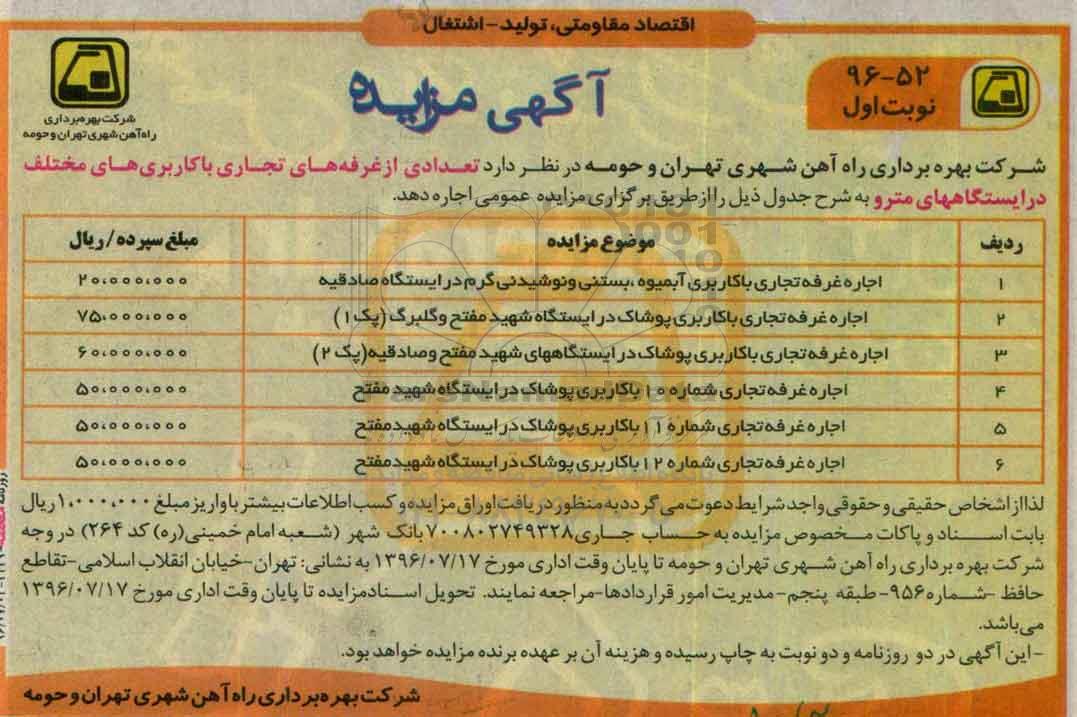 اقتصاد مقاومتی، تولید-اشتغال
۹۶-۵۲
نوبت اول
آگهی مزایده
شرکت بهره‌برداری
راه‌آهن شهری تهران و حومه
شرکت بهره برداری راه آهن شهری تهران و حومه در نظر دارد تعدادی از غرفه‌های تجاری با کاربری‌های مختلف
در ایستگاههای مترو به شرح جدول ذیل را از طریق برگزاری مزایده عمومی اجاره دهد.
ردیف موضوع مزایده مبلغ سپرده/ریال
۱ اجاره غرفه تجاری با کاربری آبمیوه، بستنی و نوشیدنی گرم در ایستگاه صادقیه ۲۰،۰۰۰،۰۰۰
۲ اجاره غرفه تجاری با کاربری پوشاک در ایستگاه شهید مفتح و گلبرگ (پک ۱) ۷۵،۰۰۰،۰۰۰
۳ اجاره غرفه تجاری با کاربری پوشاک در ایستگاههای شهید مفتح و صادقیه (پک ۲) ۶۰،۰۰۰،۰۰۰
۴ اجاره غرفه تجاری شماره ۱۰ با کاربری پوشاک در ایستگاه شهید مفتح ۵۰،۰۰۰،۰۰۰
۵ اجاره غرفه تجاری شماره ۱۱ با کاربری پوشاک در ایستگاه شهید مفتح ۵۰،۰۰۰،۰۰۰
۶ اجاره غرفه تجاری شماره ۱۲ با کاربری پوشاک در ایستگاه شهید مفتح ۵۰،۰۰۰،۰۰۰
لذا از اشخاص حقیقی و حقوقی واجد شرایط دعوت می گردد به منظور دریافت اوراق مزایده و کسب اطلاعات بیشتر با واریز مبلغ ۱،۰۰۰،۰۰۰ ریال
بابت اسناد و پاکات مخصوص مزایده به حساب جاری ۷۰۰۸۰۲۷۴۹۳۲۸ بانک شهر (شعبه امام خمینی(ره) کد ۲۶۴) در وجه
شرکت بهره برداری راه آهن شهری تهران و حومه تا پایان وقت اداری مورخ ۱۳۹۶/۰۷/۱۷ به نشانی: تهران-خیابان انقلاب اسلامی-تقاطع
حافظ -شماره ۹۵۶- طبقه پنجم-مدیریت امور قراردادها-مراجعه نمایند. تحویل اسناد مزایده تا پایان وقت اداری مورخ ۱۳۹۶/۰۷/۱۷
می‌باشد.
-این آگهی در دو روزنامه و دو نوبت به چاپ رسیده و هزینه آن بر عهده برنده مزایده خواهد بود.
شرکت بهره برداری راه آهن شهری تهران و حومه